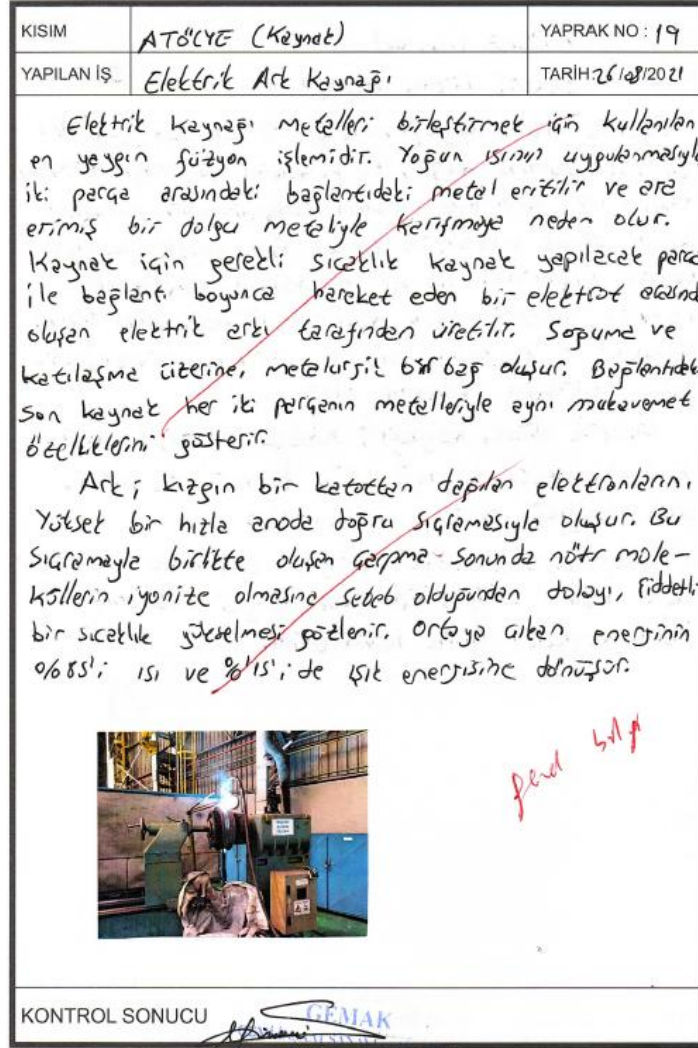 KISIM
ATÖLYE (Kaynak)
YAPRAK NO : 19
YAPILAN İŞ
Elektrik Ark Kaynağı
TARİH:26/08/2021
Elektrik Kaynağı metalleri birleştirmek için kullanılan
en yaygın füzyon işlemidir. Yoğun ısının uygulanmasıyla
iki parça arasındaki bağlantıdaki metal eritilir ve ara
erimiş bir dolgu metaliyle karışmaya neden olur.
Kaynak için gerekli sıcaklık kaynak yapılacak parça
ile bağlantı boyunca hareket eden bir elektrot arasında
oluşan elektrik arkı tarafından üretilir. Soğuma ve
katılaşma üzerine, metalurjik bir bağ oluşur. Bağlantıdaki
son kaynak her iki parçanın metalleriyle aynı mukavemet
özelliklerini gösterir.
Ark; kızgın bir katottan dağılan elektronların,
Yüksek bir hızla anoda doğru sıçramasıyla oluşur. Bu
sıçramayla birlikte oluşan çarpma sonunda nötr mole-
küllerin iyonize olmasına sebeb olduğundan dolayı, şiddetli
bir sıcaklık yükselmesi gözlenir. Ortaya çıkan enerjinin
%85'i ısı ve %15'i de ışık enerjisine dönüşür.
KONTROL SONUCU
GEMAK